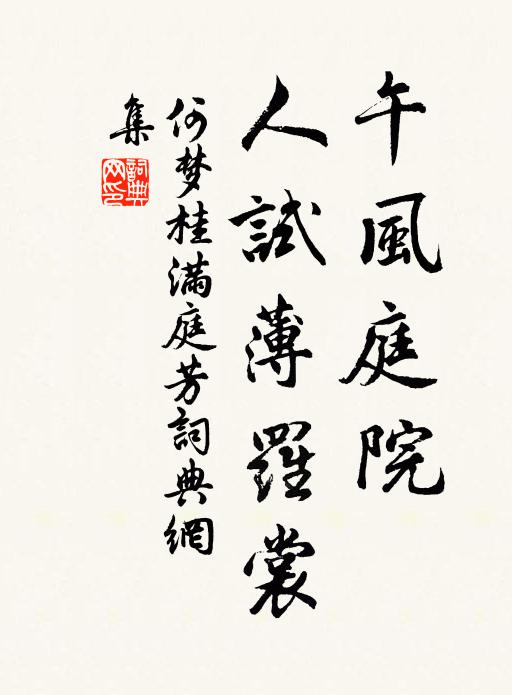 午風庭院
人試薄羅裳
何梦桂滿庭芳詞典網
集
詞典
网印